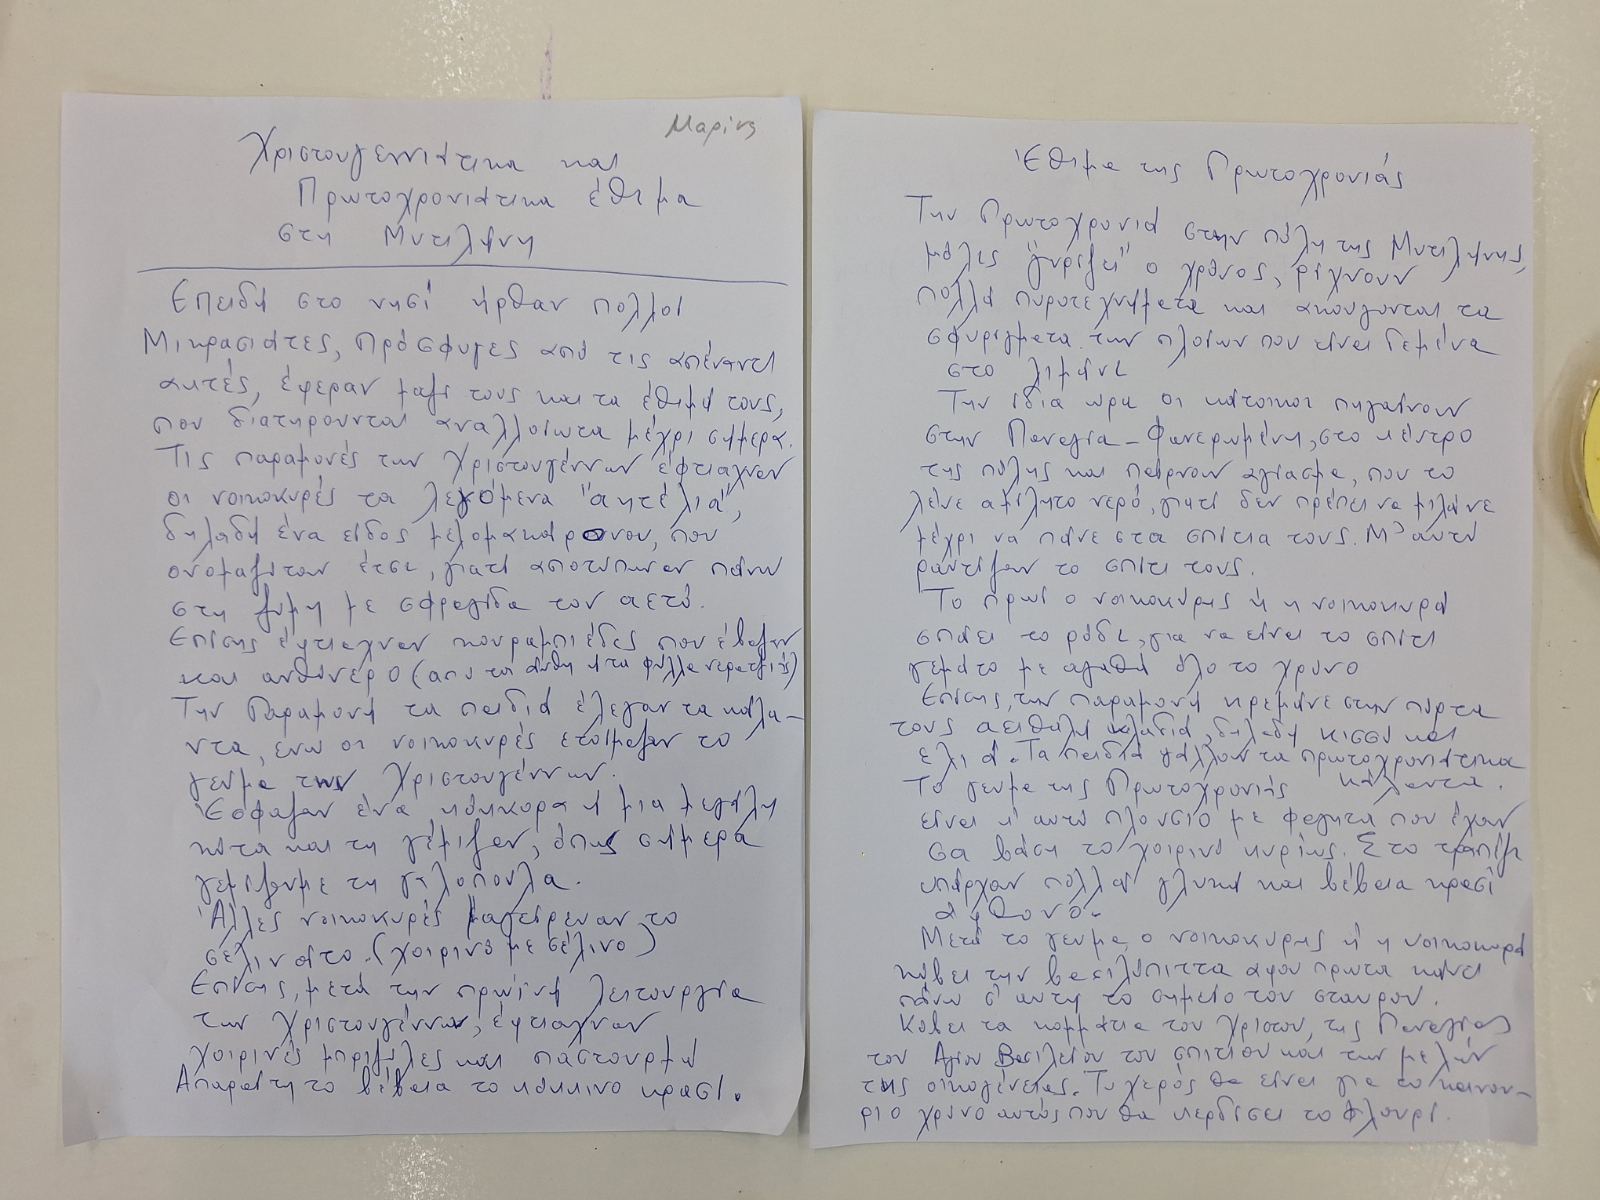 Μαρίνς
Χριστουγεννιάτικα και
Πρωτοχρονιάτικα έθιμα
στη Μυτιλήνη
Επειδή στο νησί ήρθαν πολλοί
Μικρασιάτες, πρόσφυγες από τις απέναντι
ακτές, έφεραν μαζί τους και τα έθιμά τους,
που διατηρούνται αναλλοίωτα μέχρι σήμερα.
Τις παραμονές των Χριστουγέννων έφτιαχναν
οι νοικοκυρές τα λεγόμενα "αητέλια",
δηλαδή ένα είδος μελομακάρονου, που
ονομαζόταν έτσι, γιατί αποτύπωναν πάνω
στη ζύμη με σφραγίδα τον αετό.
Επίσης έφτιαχναν κουραμπιέδες που έβαζαν
και ανθόνερο (από τα άνθη ή τα φύλλα νερατζιάς)
Την Παραμονή τα παιδιά έλεγαν τα κάλα-
ντα, ενώ οι νοικοκυρές ετοίμαζαν το
γεύμα των Χριστουγέννων.
Έσφαζαν ένα κόκκορα ή μια μεγάλη
κότα και τη γέμιζαν, όπως σήμερα
γεμίζουμε τη γαλοπούλα.
Άλλες νοικοκυρές μαγείρευαν το
σέλινάτο. (χοιρινό με σέλινο)
Επίσης, μετά την πρωινή λειτουργία
των Χριστουγέννων, έφτιαχναν
χοιρινές μπριζόλες και παστουρμά
Απαραίτητο βέβαια το κόκκινο κρασί.
Έθιμα της Πρωτοχρονιάς
Την Πρωτοχρονιά στην πόλη της Μυτιλήνης,
μόλις "γυρίζει" ο χρόνος, ρίχνουν
πολλά πυροτεχνήματα και ακούγονται τα
σφυρίγματα των πλοίων που είναι δεμένα
στο λιμάνι
Την ίδια ώρα οι κάτοικοι πηγαίνουν
στην Παναγία - Φανερωμένη, στο κέντρο
της πόλης και παίρνουν αγίασμα, που το
λένε αμίλητο νερό, γιατί δεν πρέπει να μιλάνε
μέχρι να πάνε στα σπίτια τους. Μ' αυτό
ραντίζαν το σπίτι τους.
Το πρωί ο νοικοκύρης ή η νοικοκυρά
σπάει το ρόδι, για να είναι το σπίτι
γεμάτο με αγαθά όλο το χρόνο
Επίσης, την παραμονή κρεμάνε στην πόρτα
τους αειθαλή κλαδιά, δηλαδή κισσό και
ελιά. Τα παιδιά ψάλλουν τα πρωτοχρονιάτικα
κάλαντα.
Το γεύμα της Πρωτοχρονιάς
είναι κι αυτό πλούσιο με φαγητά που έχουν
σα βάση το χοιρινό κυρίως. Στο τραπέζι
υπάρχουν πολλά γλυκά και βέβαια κρασί
άφθονο.
Μετά το γεύμα ο νοικοκύρης ή η νοικοκυρά
κόβει την βασιλόπιττα αφού πρώτα κάνει
πάνω σ' αυτή το σημείο του σταυρού.
Κόβει τα κομμάτια του Χριστού, της Παναγίας
του Αγίου Βασιλείου του σπιτιού και των μελών
της οικογένειας. Τυχερός θα είναι για το καινού-
ριο χρόνο αυτός που θα κερδίσει το φλουρί.